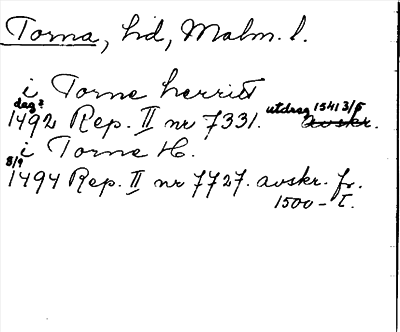 Torna, hd, Malm. l.
i Torne herrit
dag?
1492 Rep. II nr 7331. utdrag 1541 3/5 avskr.
i Torne H.
8/9
1494 Rep. II nr 7727. avskr. fr.
1500-t.